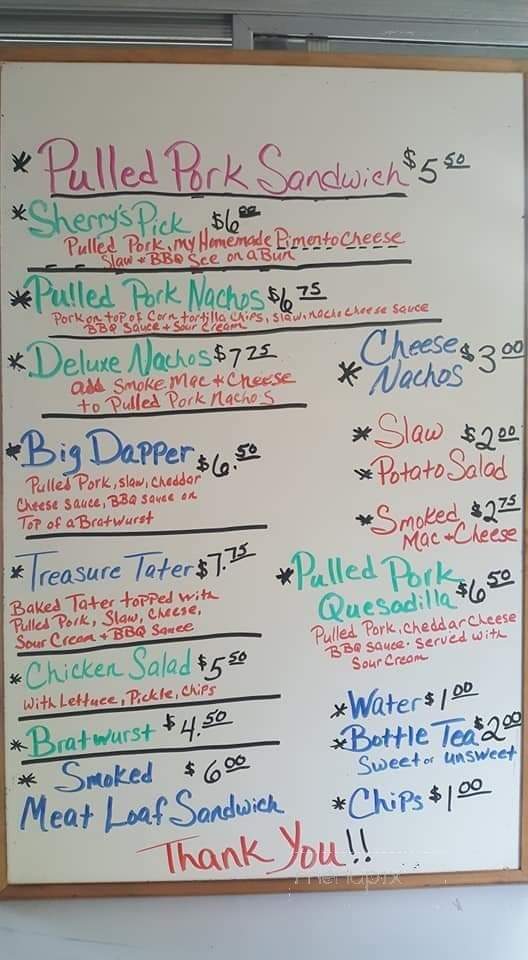 * Pulled Pork Sandwich $5 50
* Sherry's Pick $6 00
Pulled Pork, my Homemade Pimento Cheese
Slaw + BBQ Sce on a Bun
* Pulled Pork Nachos $6 75
Pork on top of Corn tortilla Chips, slaw, nacho cheese sauce
BBQ Sauce + Sour Cream
* Deluxe Nachos $7 25
add Smoke Mac + Cheese
to Pulled Pork Nachos
* Big Dapper $6.50
Pulled Pork, slaw, cheddar
Cheese sauce, BBQ sauce on
Top of a Bratwurst
* Treasure Tater $7.75
Baked Tater topped with
Pulled Pork, Slaw, Cheese,
Sour Cream + BBQ Sauce
* Chicken Salad $5 50
with Lettuce, Pickle, Chips
* Bratwurst $4.50
* Smoked $6 00
Meat Loaf Sandwich
* Cheese $3 00
Nachos
* Slaw $2 00
* Potato Salad
* Smoked $2 75
Mac + Cheese
* Pulled Pork
Quesadilla $6 50
Pulled Pork, Cheddar Cheese
BBQ sauce. Served with
Sour Cream
* Water $1 00
* Bottle Tea $2 00
Sweet or unsweet
* Chips $1 00
Thank You!!
menupix